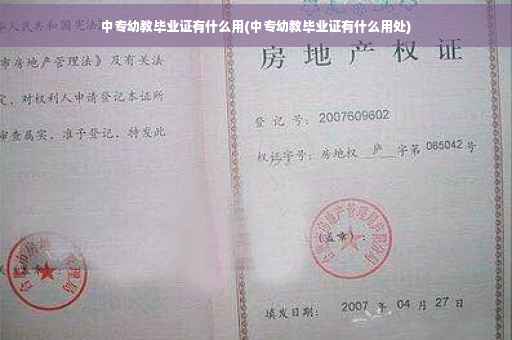 中专幼教毕业证有什么用(中专幼教毕业证有什么用处)
人民共和国宪法
市房地产管理法》及有关法
定，对权利人申请登记本证所
审查属实，准予登记，特发此
房地产权证
登记号：2007609602
权证字号：房地权 庐 字第 085042 号
(盖章)：
填发日期：2007 年 04 月 27 日